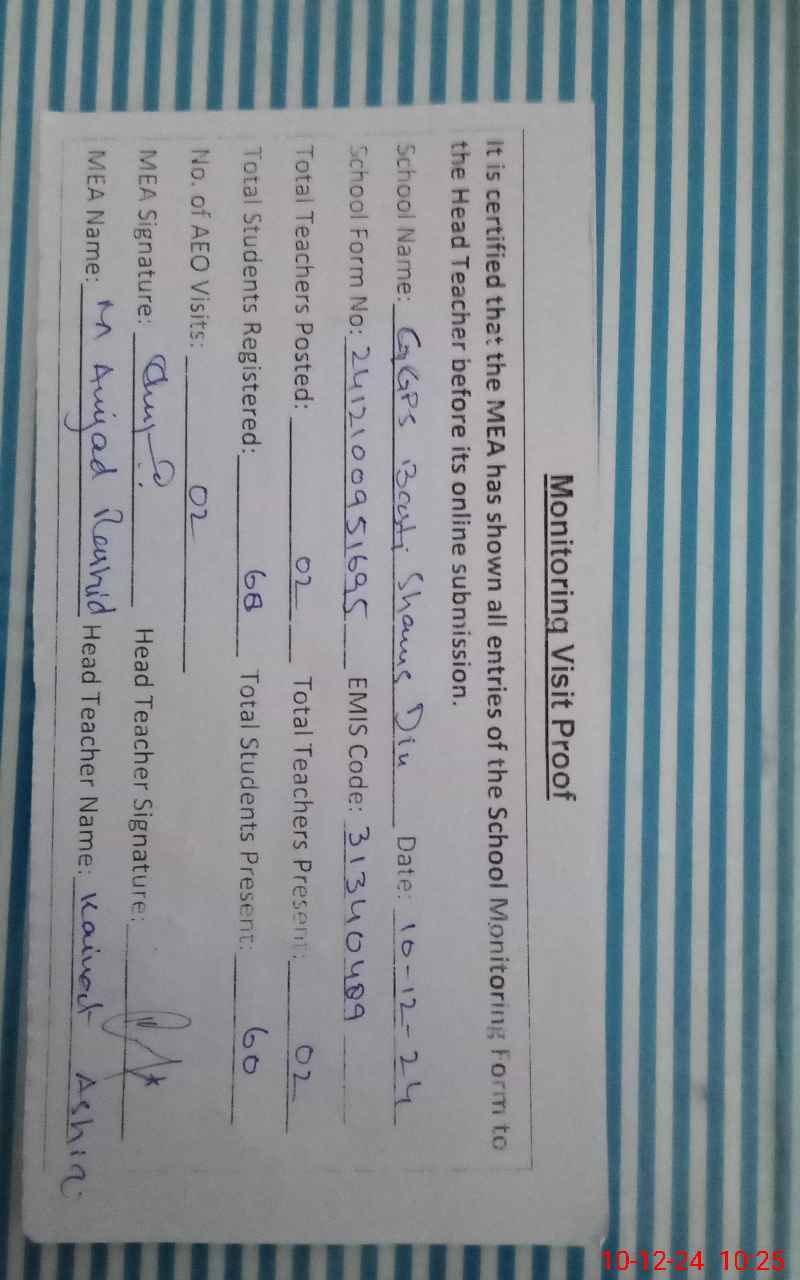 Monitoring Visit Proof
It is certified that the MEA has shown all entries of the School Monitoring Form to
the Head Teacher before its online submission.
School Name: GGPS Basti Shams Din Date: 10-12-24
School Form No: 2412100951695 EMIS Code: 31340489
Total Teachers Posted: 02 Total Teachers Present: 02
Total Students Registered: 68 Total Students Present: 60
No. of AEO Visits: 02
MEA Signature: Head Teacher Signature:
MEA Name: M Amjad Rashid Head Teacher Name: Kainat Ashiq
10-12-24 10:25